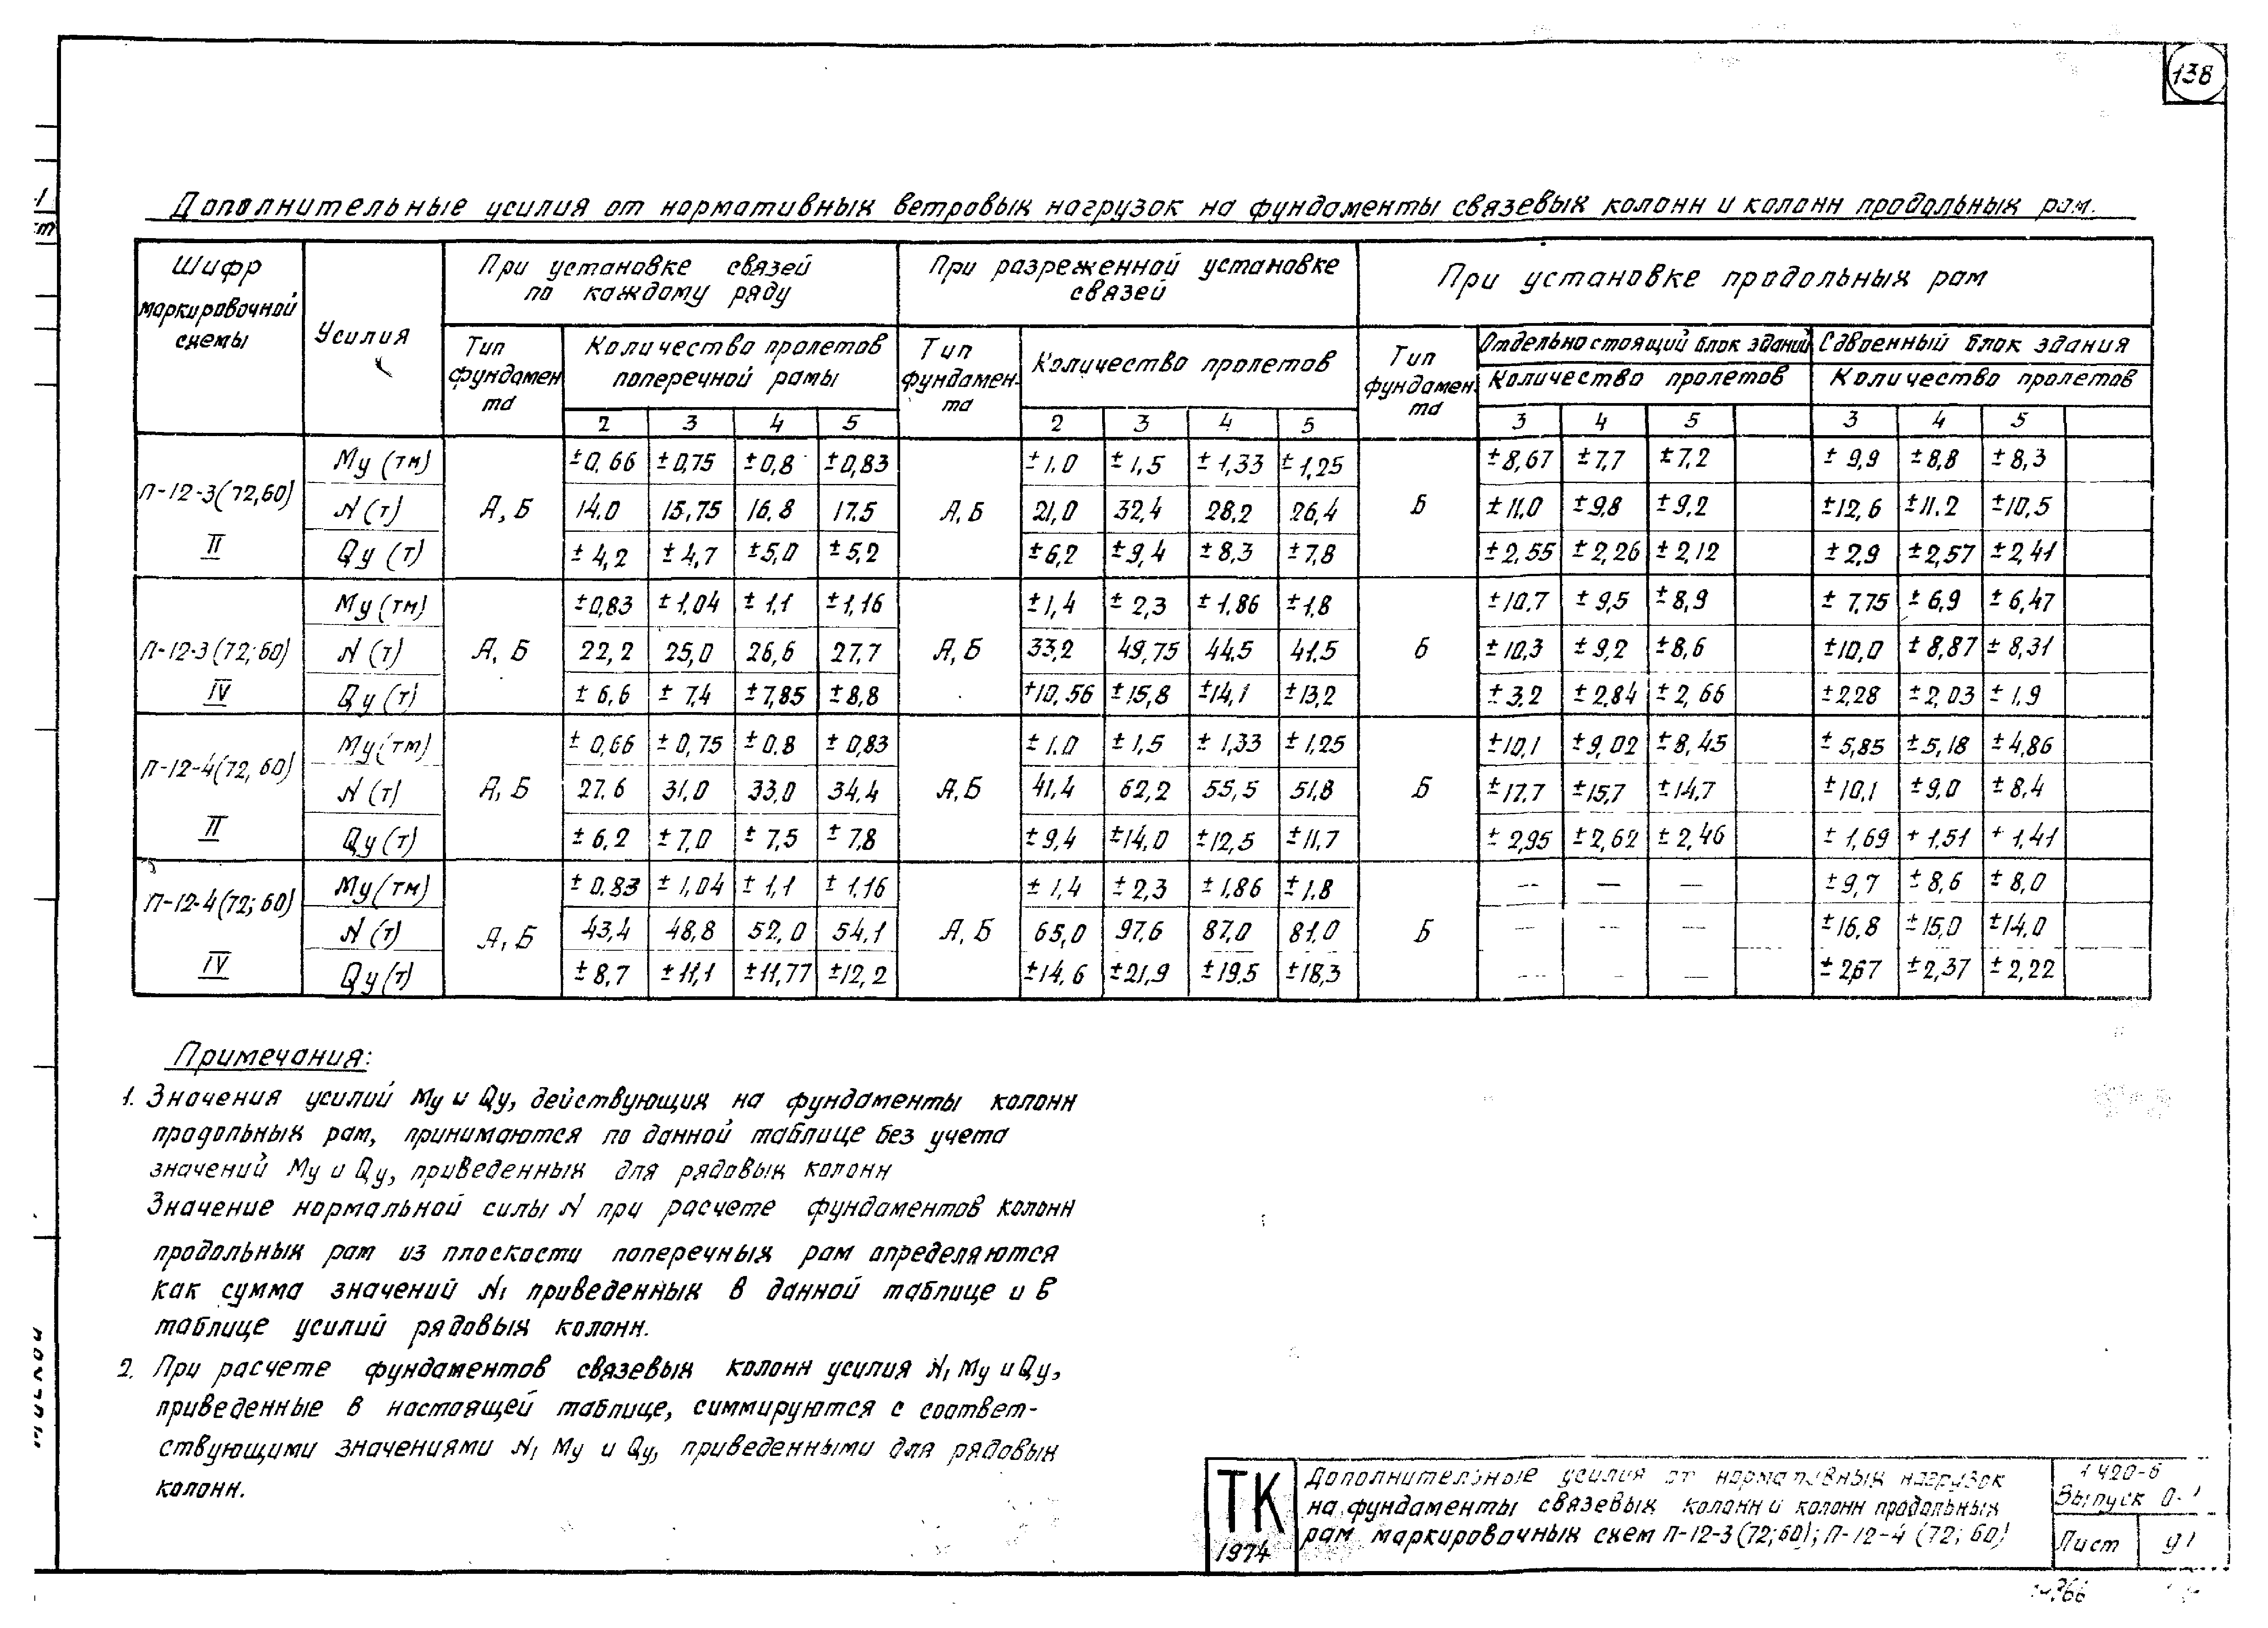 138
Дополнительные усилия от нормативных ветровых нагрузок на фундаменты связевых колонн и колонн продольных рам.
Шифр маркировочной схемы | Усилия | При установке связей по каждому ряду | При разреженной установке связей | При установке продольных рам
Тип фундамента | Количество пролетов поперечной рамы | Тип фундамен-та | Количество пролетов | Тип фундамен-та | Отдельно стоящий блок зданий | Сдвоенный блок здания
Количество пролетов | Количество пролетов
2 | 3 | 4 | 5 | 2 | 3 | 4 | 5 | 3 | 4 | 5 | 3 | 4 | 5
П-12-3(72,60) II
Му (тм) | ±0,66 | ±0,75 | ±0,8 | ±0,83 | ±1.0 | ±1,5 | ±1,33 | ±1,25 | ±8,67 | ±7,7 | ±7,2 | ±9,9 | ±8,8 | ±8,3
N (т) | А, Б | 14.0 | 15,75 | 16,8 | 17.5 | А, Б | 21,0 | 32,4 | 28,2 | 26,4 | Б | ±11.0 | ±9,8 | ±9,2 | ±12,6 | ±11.2 | ±10,5
Qу (т) | ±4,2 | ±4,7 | ±5,0 | ±5,2 | ±6,2 | ±9,4 | ±8,3 | ±7,8 | ±2,55 | ±2,26 | ±2,12 | ±2,9 | ±2,57 | ±2,41
П-12-3(72;60) IV
Му (тм) | ±0,83 | ±1,04 | ±1,1 | ±1,16 | ±1,4 | ±2,3 | ±1,86 | ±1,8 | ±10,7 | ±9,5 | ±8,9 | ±7,75 | ±6,9 | ±6,47
N (т) | А, Б | 22,2 | 25,0 | 26,6 | 27,7 | А, Б | 33,2 | 49,75 | 44,5 | 41.5 | б | ±10,3 | ±9,2 | ±8,6 | ±10,0 | ±8,87 | ±8,31
Qу (т) | ±6,6 | ±7,4 | ±7,85 | ±8,8 | ±10,56 | ±15,8 | ±14,1 | ±13,2 | ±3,2 | ±2,84 | ±2,66 | ±2,28 | ±2,03 | ±1,9
П-12-4(72,60) II
Му (тм) | ±0,66 | ±0,75 | ±0.8 | ±0,83 | ±1.0 | ±1,5 | ±1,33 | ±1,25 | ±10,1 | ±9,02 | ±8,45 | ±5,85 | ±5,18 | ±4,86
N (т) | А, Б | 27.6 | 31,0 | 33,0 | 34,4 | А, Б | 41,4 | 62,2 | 55,5 | 51,8 | Б | ±17.7 | ±15,7 | ±14,7 | ±10,1 | ±9,0 | ±8,4
Qу (т) | ±6,2 | ±7,0 | ±7,5 | ±7,8 | ±9,4 | ±14,0 | ±12,5 | ±11,7 | ±2,95 | ±2,62 | ±2,46 | ±1,69 | + 1,51 | + 1,41
П-12-4(72;60) IV
Му (тм) | ±0,83 | ±1,04 | ±1,1 | ±1,16 | ±1,4 | ±2,3 | ±1,86 | ±1.8 | — | — | — | ±9,7 | ±8,6 | ±8,0
N (т) | А, Б | 43,4 | 48,8 | 52,0 | 54,1 | А, Б | 65,0 | 97.6 | 87,0 | 81.0 | Б | — | — | — | ±16,8 | ±15,0 | ±14,0
Qу (т) | ±8,7 | ±11,1 | ±11,77 | ±12,2 | ±14,6 | ±21,9 | ±19.5 | ±18,3 | — | — | — | ±2,67 | ±2,37 | ±2,22
Примечания:
1. Значения усилий Му и Qу, действующих на фундаменты колонн
продольных рам, принимаются по данной таблице без учета
значений Му и Qу, приведенных для рядовых колонн
Значение нормальной силы N при расчете фундаментов колонн
продольных рам из плоскости поперечных рам определяются
как сумма значений N, приведенных в данной таблице и в
таблице усилий рядовых колонн.
2. При расчете фундаментов связевых колонн усилия N, Му и Qу,
приведенные в настоящей таблице, симмируются с соответ-
ствующими значениями N, Му и Qу, приведенными для рядовых
колонн.
ТК
1974
Дополнительные усилия от нормативных нагрузок
на фундаменты связевых колонн и колонн продольных
рам маркировочных схем П-12-3(72;60); П-12-4 (72; 60)
1 420-6
Выпуск 0-1
Лист 91